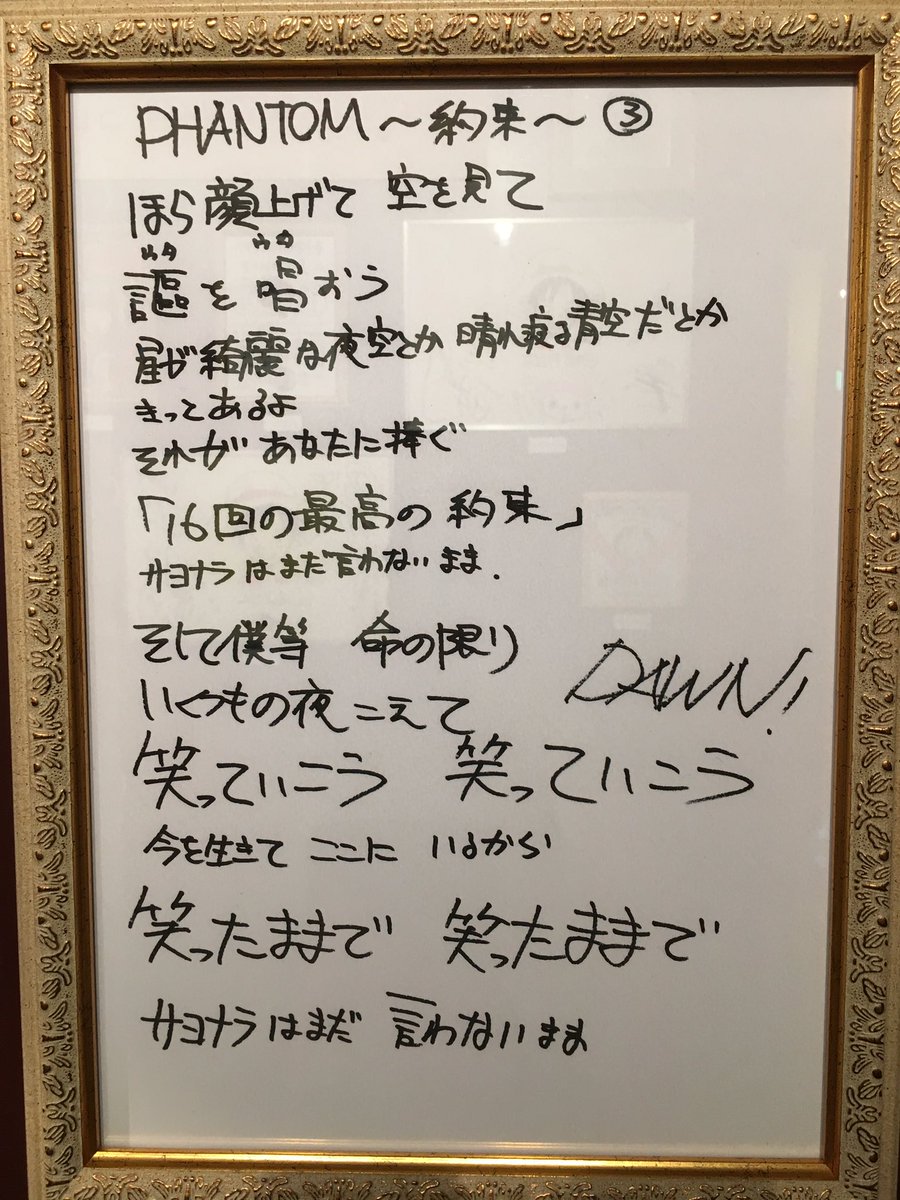 PHANTOM～約束～ ③
ほら顔上げて 空を見て
謳を唱おう
ウタ ウタ
星が綺麗な夜空とか 晴れ渡る青空だとか
きっとあるよ
それが あなたに捧ぐ
「16回の最高の約束」
サヨナラはまだ言わないまま.
そして僕等 命の限り
DAWN!
いくつもの夜こえて
笑っていこう 笑っていこう
今を生きて ここに いるから
笑ったままで 笑ったままで
サヨナラはまだ 言わないまま